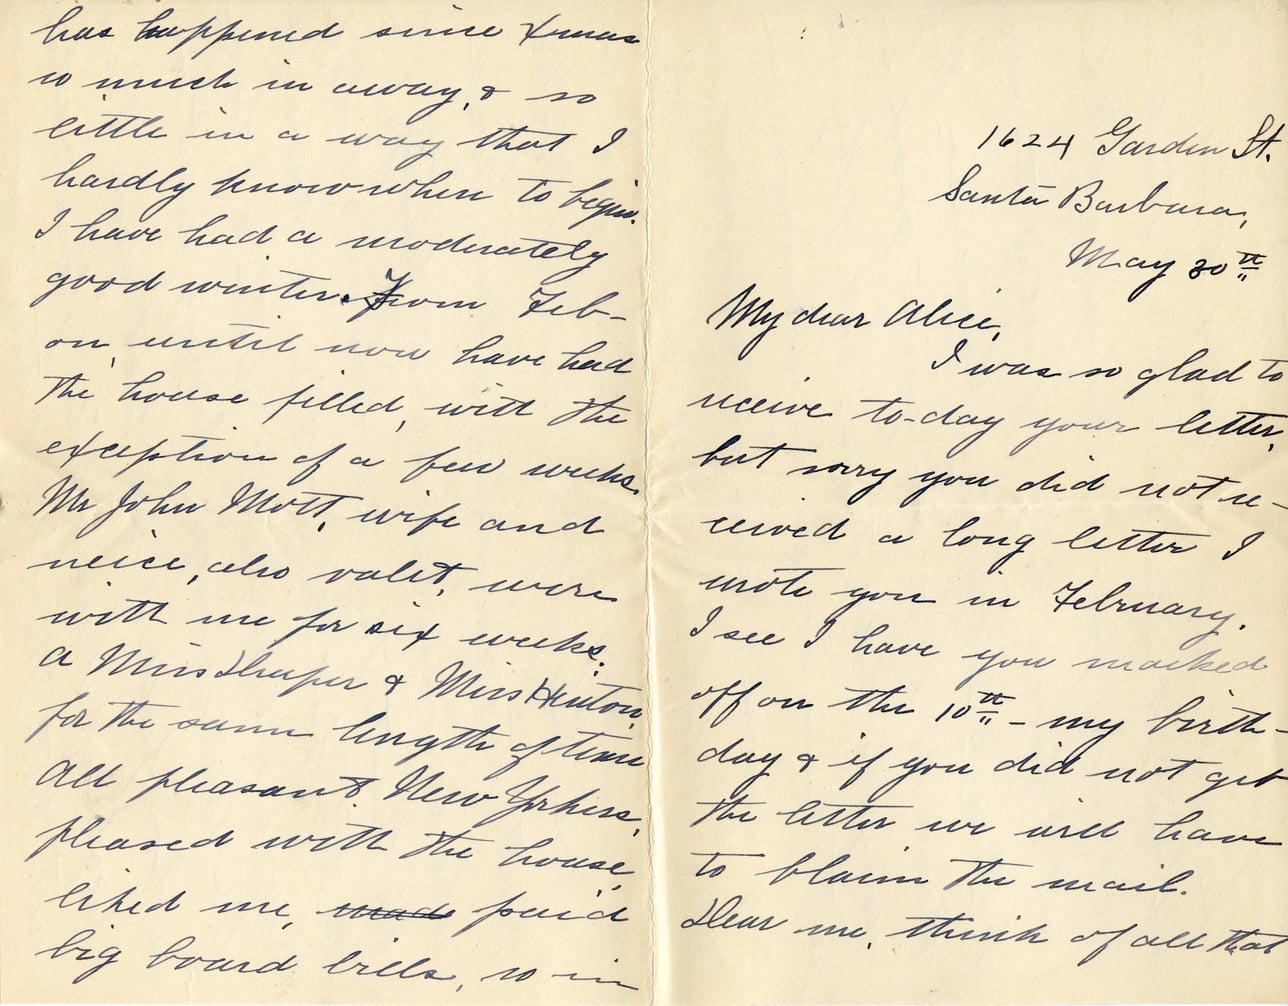 1624 Garden St.
Santa Barbara,
May 30th
My dear Alice,
I was so glad to
receive to-day your letter,
but sorry you did not re-
ceived a long letter I
wrote you in February.
I see I have you marked
off on the 10th - my birth-
day & if you did not get
the letter we will have
to blaim the mail.
Dear me, think of all that
has happened since Xmas
so much in away, & so
little in a way that I
hardly know when to begin.
I have had a moderately
good winter. From Feb-
on, until now have had
the house filled, with the
exception of a few weeks.
Mr John Mott, wife and
neice, also valet, were
with me for six weeks.
A Miss Draper & Miss Hinton,
for the same length of time
All pleasant New Yorkers,
pleased with the house,
liked me, made paid
big board bills, so in